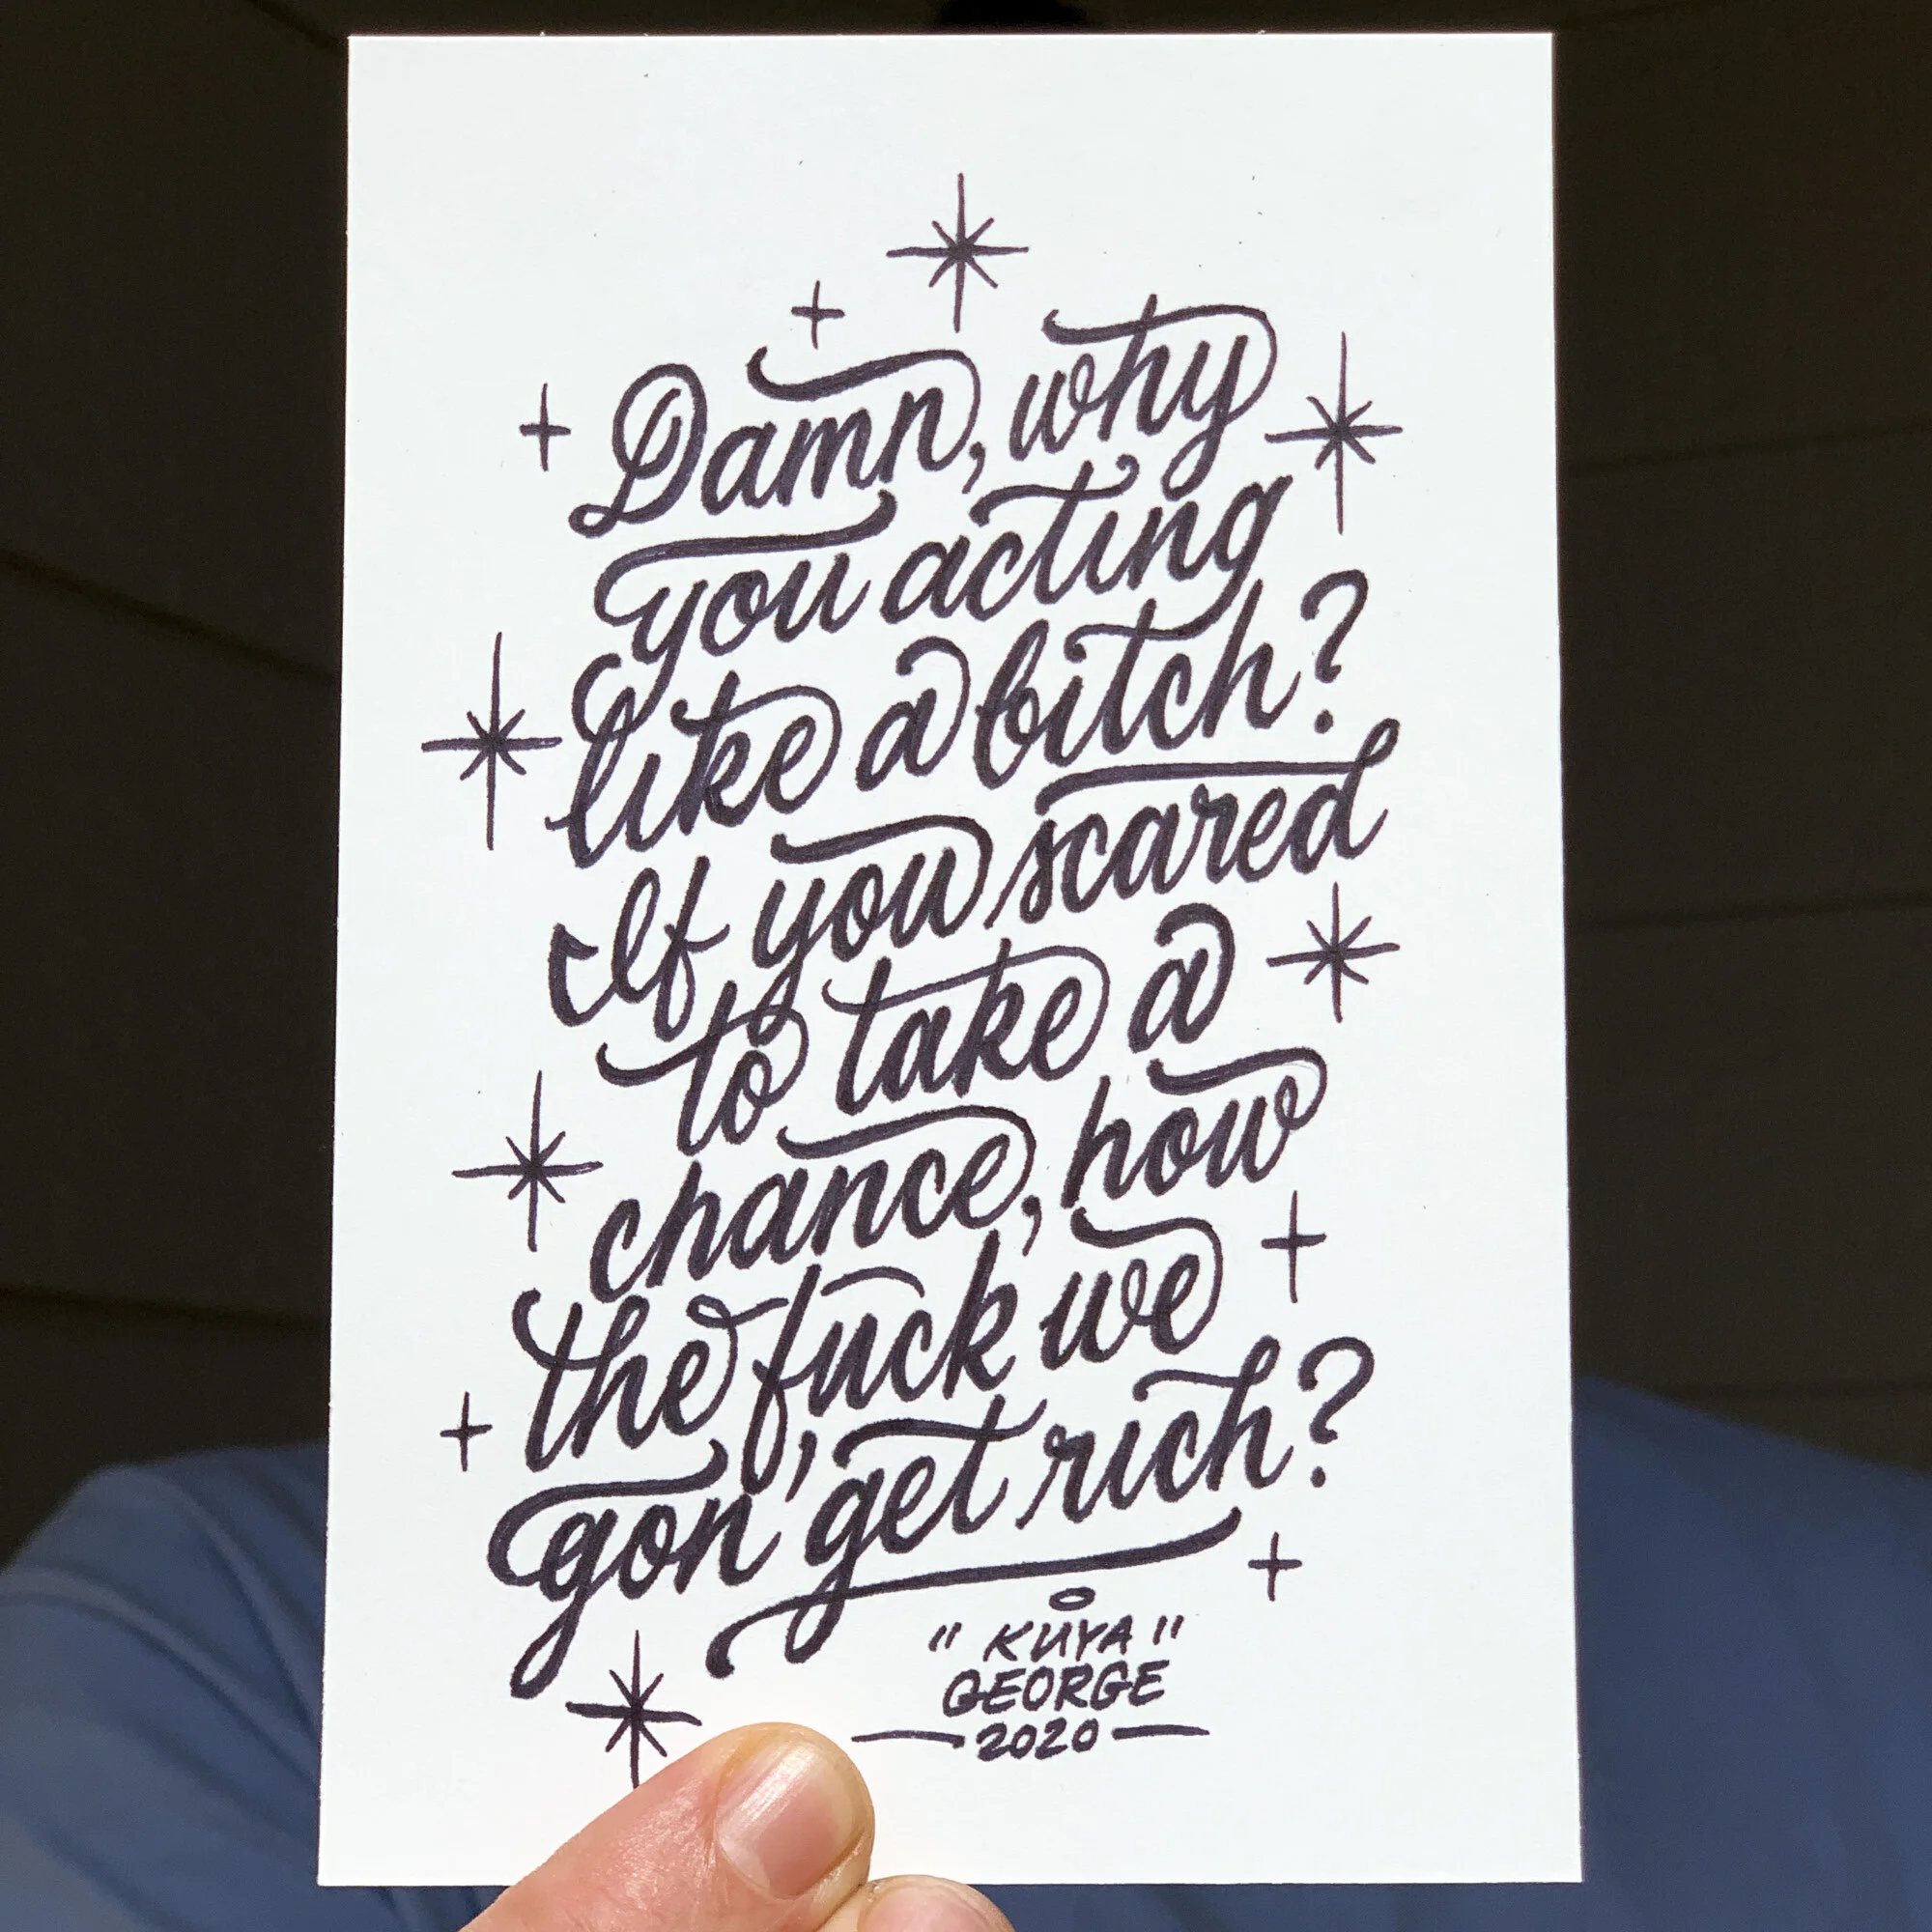 Damn, why
you acting
like a bitch?
If you scared
to take a
chance, how
the fuck we
gon' get rich?
"KUYA"
GEORGE
2020